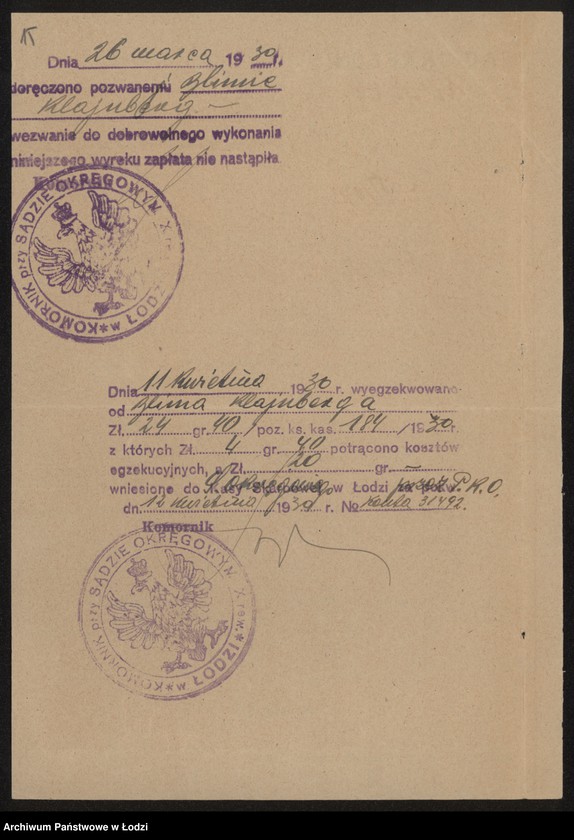 Dnia 26 marca 1930 r.
doręczono pozwanemu
Klajnberg
wezwanie do dobrowolnego wykonania
niniejszego wyroku zapłata nie nastąpiła.
KOMORNIK przy SĄDZIE OKRĘGOWYM X rew. * w ŁODZI *
Dnia 11 kwietnia 1930 r. wyegzekwowano
od Klajnberga
Zł. 24 gr. 40 / poz. ks. kas. 184 / 1930.
z których Zł. 4 gr. 40 potrącono kosztów
egzekucyjnych, a Zł. 20 gr.
wniesione do Kasy Skarbowej w Łodzi przez P.K.O.
dn. 12 kwietnia 1930 r. № 31492.
Komornik
KOMORNIK przy SĄDZIE OKRĘGOWYM X rew. * w ŁODZI *
Archiwum Państwowe w Łodzi